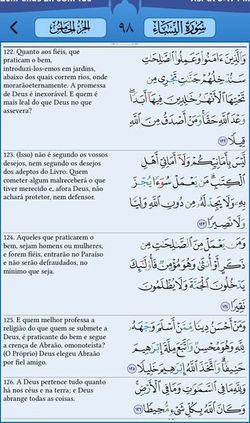 سُورَةُ النِّسَاءِ
٩٨
122. Quanto aos fiéis, que
praticam o bem,
introduzi-los-emos em jardins,
abaixo dos quais correm rios, onde
morarãoeternamente. A promessa
de Deus é inexorável. E quem é
mais leal do que Deus no que
assevera?
وَالَّذِينَ ءَامَنُوا وَعَمِلُوا الصَّلِحَتِ
سَنُدْخِلُهُمْ جَنَّتٍ تَجْرِى مِن
تَحْتِهَا الْأَنْهَرُ خَلِدِينَ فِيهَا أَبَدًا
وَعْدَ اللَّهِ حَقًّا وَمَنْ أَصْدَقُ مِنَ اللَّهِ
قِيلًا ١٢٢
123. (Isso) não é segundo os vossos
desejos, nem segundo os desejos
dos adeptos do Livro. Quem
cometer algum malreceberá o que
tiver merecido e, afora Deus, não
achará protetor, nem defensor.
لَّيْسَ بِأَمَانِيِّكُمْ وَلَا أَمَانِىِّ أَهْلِ
الْكِتَبِ مَن يَعْمَلْ سُوءًا يُجْزَ
بِهِ وَلَا يَجِدْ لَهُ مِن دُونِ اللَّهِ وَلِيًّا
وَلَا نَصِيرًا ١٢٣
124. Aqueles que praticarem o
bem, sejam homens ou mulheres,
e forem fiéis, entrarão no Paraíso
e não serão defraudados, no
mínimo que seja.
وَمَن يَعْمَلْ مِنَ الصَّلِحَتِ مِن
ذَكَرٍ أَوْ أُنثَى وَهُوَ مُؤْمِنٌ فَأُولَئِكَ
يَدْخُلُونَ الْجَنَّةَ وَلَا يُظْلَمُونَ
نَقِيرًا ١٢٤
125. E quem melhor professa a
religião do que quem se submete a
Deus, é praticante do bem e segue
a crença de Abraão, omonoteísta?
(O Próprio) Deus elegeu Abraão
por fiel amigo.
وَمَنْ أَحْسَنُ دِينًا مِّمَّنْ أَسْلَمَ وَجْهَهُ
لِلَّهِ وَهُوَ مُحْسِنٌ وَاتَّبَعَ مِلَّةَ إِبْرَهِيمَ
حَنِيفًا وَاتَّخَذَ اللَّهُ إِبْرَهِيمَ خَلِيلًا ١٢٥
126. A Deus pertence tudo quanto
há nos céus e na terra; e Deus
abrange todas as coisas.
وَلِلَّهِ مَا فِى السَّمَوَتِ وَمَا فِى الْأَرْضِ
وَكَانَ اللَّهُ بِكُلِّ شَىْءٍ مُّحِيطًا ١٢٦